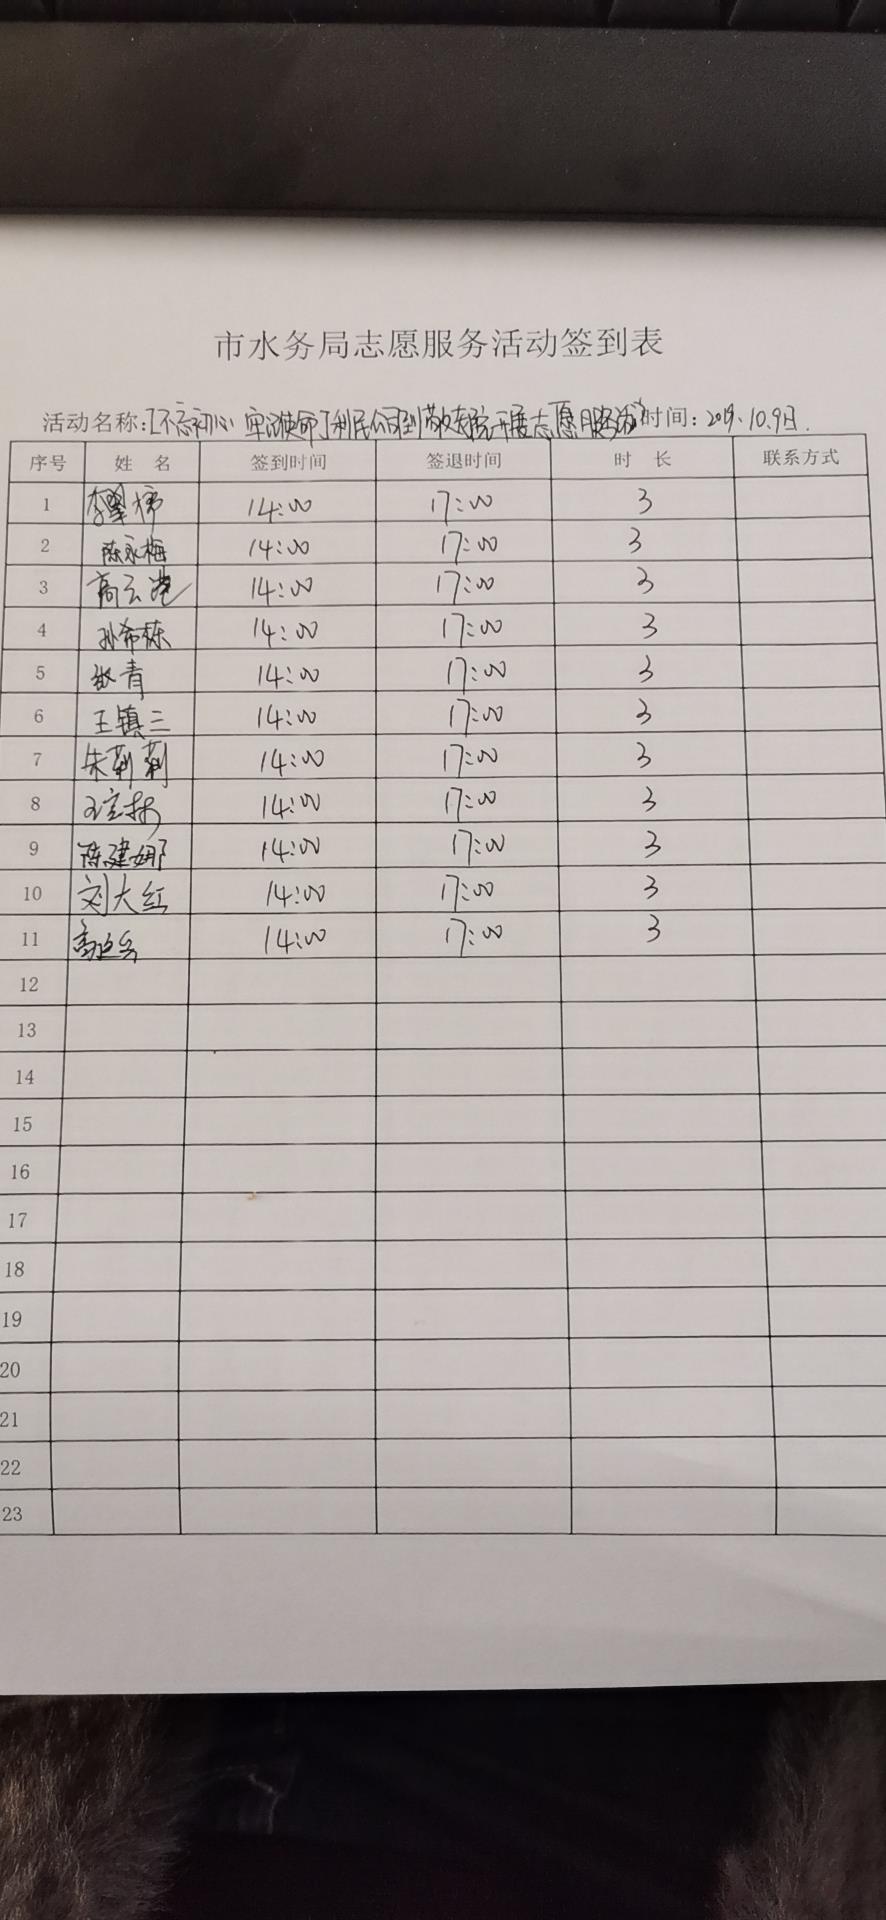 市水务局志愿服务活动签到表
活动名称:[不忘初心 牢记使命]利民公司到敬老院开展志愿服务 时间:2019.10.9日.
序号 姓 名 签到时间 签退时间 时 长 联系方式
1 14:00 17:00 3
2 陈永梅 14:00 17:00 3
3 高云港 14:00 17:00 3
4 孙希栋 14:00 17:00 3
5 张青 14:00 17:00 3
6 王镇三 14:00 17:00 3
7 朱莉莉 14:00 17:00 3
8 14:00 17:00 3
9 陈建娜 14:00 17:00 3
10 刘大红 14:00 17:00 3
11 14:00 17:00 3
12
13
14
15
16
17
18
19
20
21
22
23